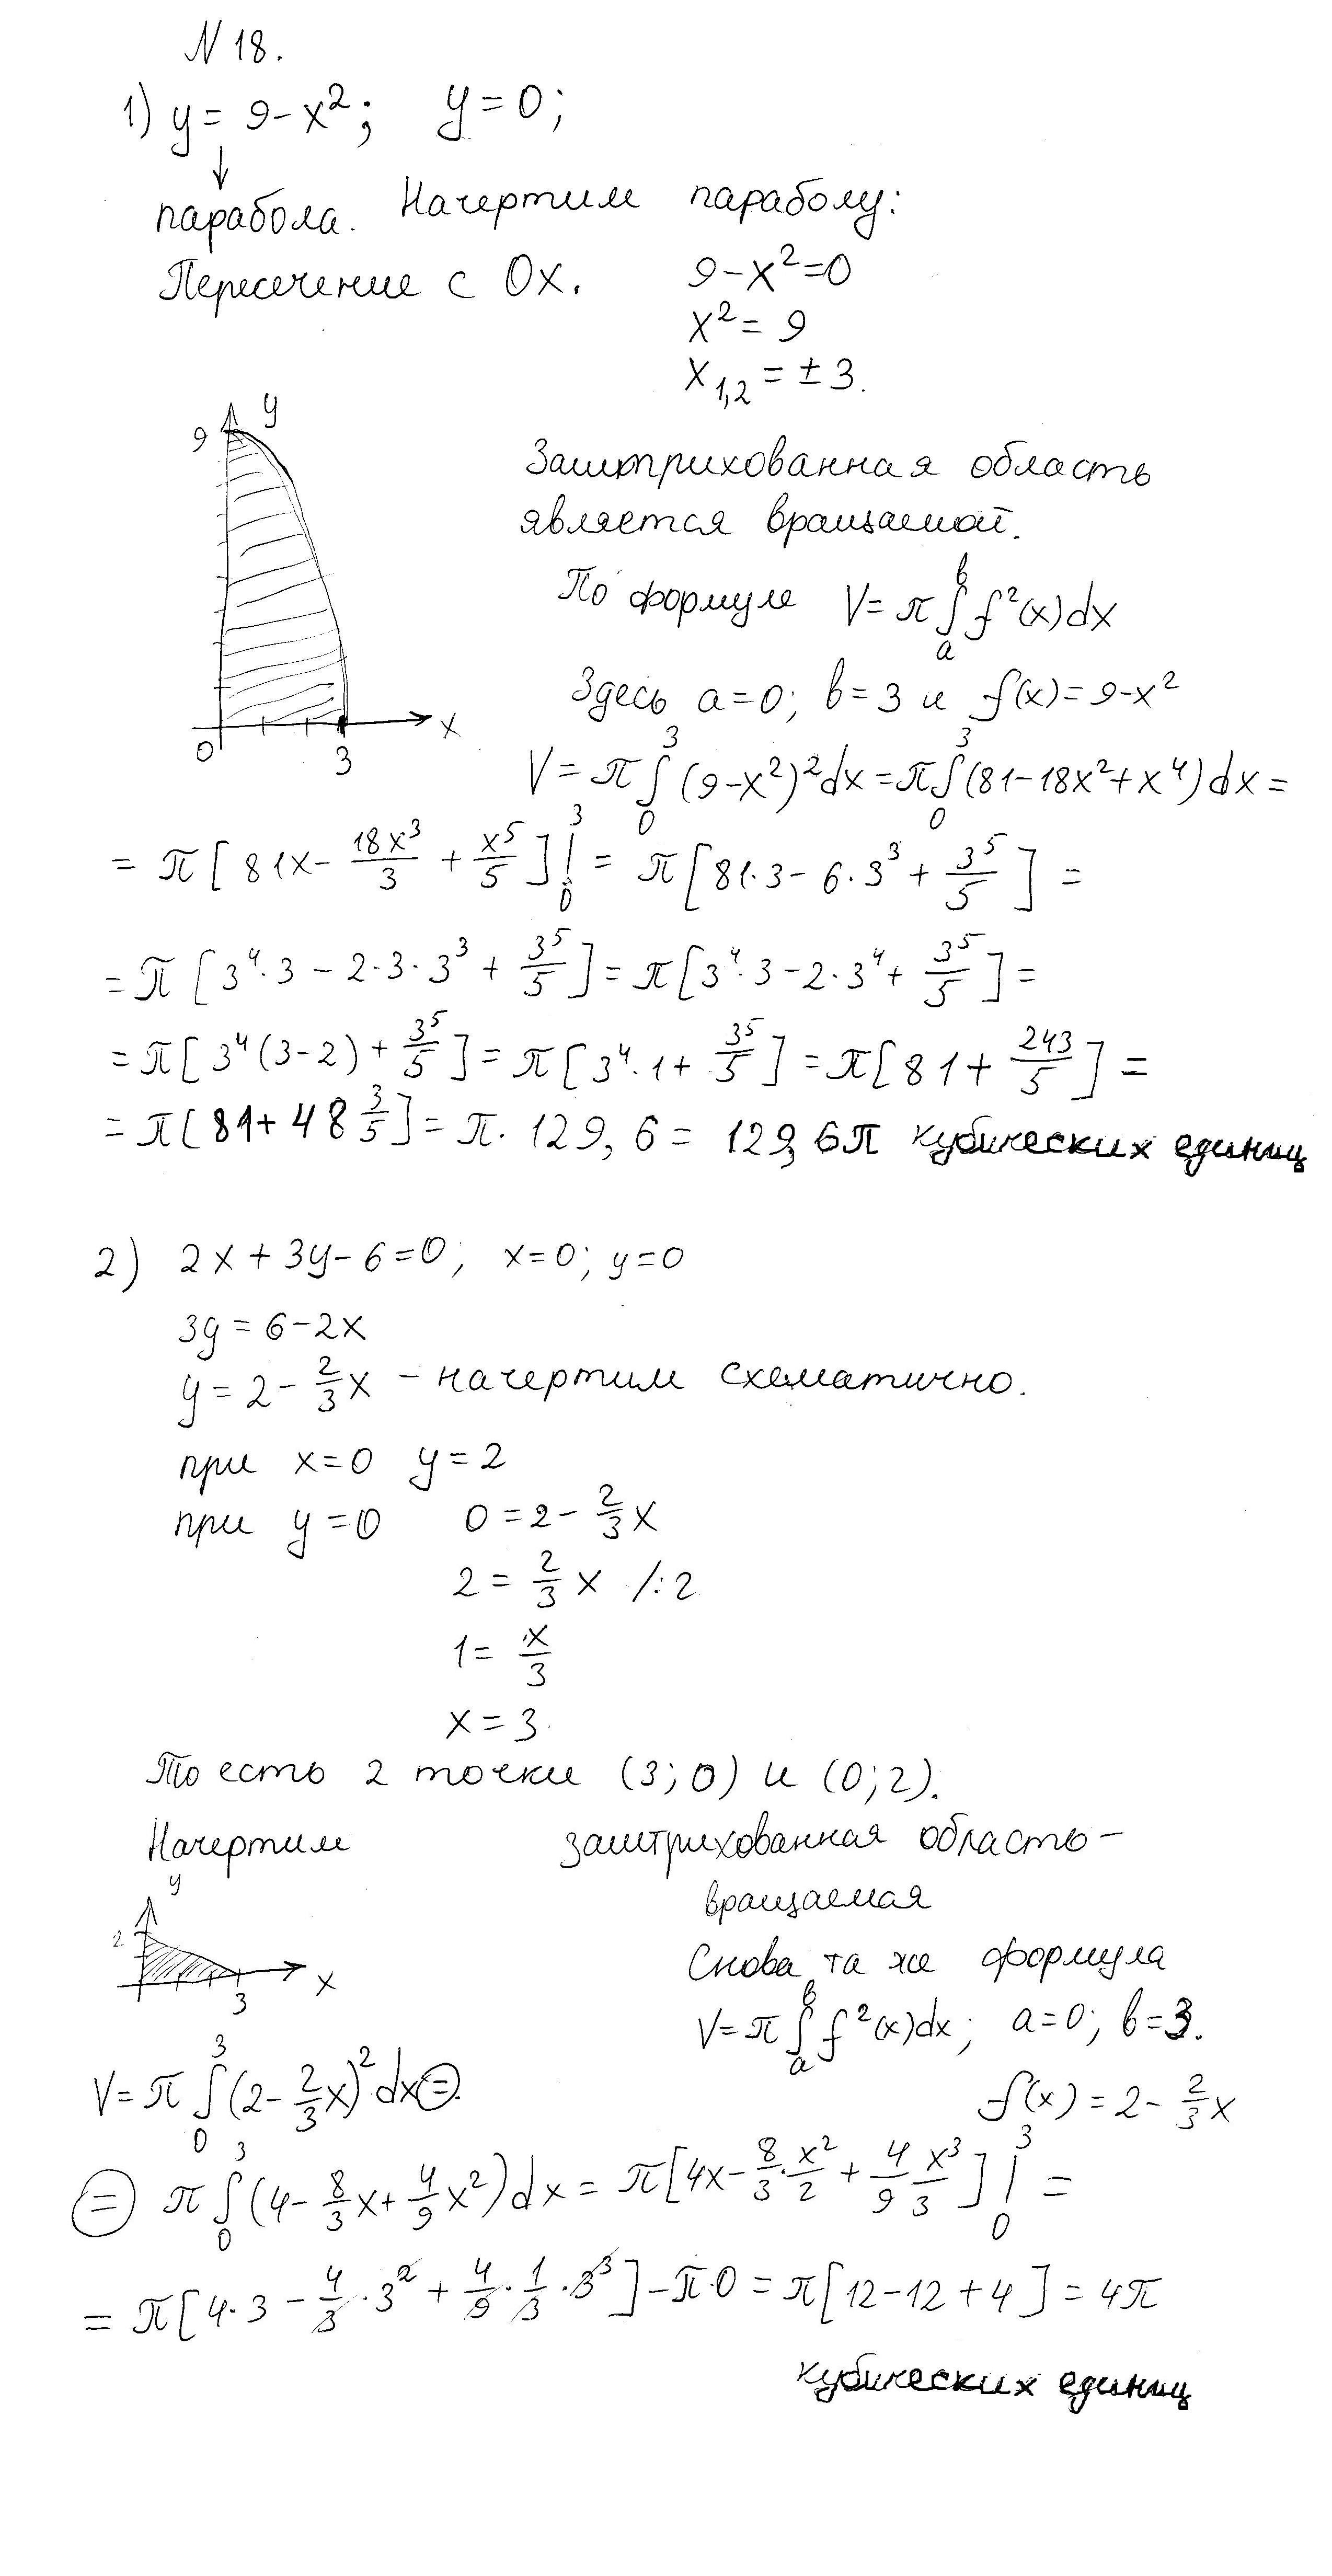 N 18.
1) y = 9-x²; y=0;
↓
парабола. Начертим параболу:
Пересечение с Ox. 9-x²=0
x²= 9
x₁,₂ = ± 3.
y
9
0
3
x
Заштрихованная область
является вращаемой.
По формуле V= π∫ₐᵇ f²(x)dx
Здесь a=0; b=3 и f(x)=9-x²
V= π∫₀³ (9-x²)²dx=π∫₀³(81-18x²+x⁴)dx=
= π[81x- 18x³/3 + x⁵/5]|₀³ = π[81·3- 6·3³ + 3⁵/5] =
= π[3⁴·3 - 2·3·3³ + 3⁵/5]= π[3⁴·3-2·3⁴+ 3⁵/5]=
= π[3⁴(3-2)+ 3⁵/5]= π[3⁴·1+ 3⁵/5]=π[81+ 243/5]=
= π[81+ 48 3/5]= π· 129,6 = 129,6π кубических единиц
2) 2x+3y-6=0; x=0; y=0
3y=6-2x
y=2- 2/3x - начертим схематично.
при x=0 y=2
при y=0 0=2- 2/3x
2= 2/3x /:2
1= x/3
x=3.
То есть 2 точки (3;0) и (0;2).
Начертим заштрихованная область-
вращаемая
y
2
3
x
Снова та же формула
V=π∫ₐᵇ f²(x)dx; a=0; b=3.
f(x)=2- 2/3x
V= π∫₀³(2- 2/3x)²dx=.
= π∫₀³(4- 8/3x+ 4/9x²)dx= π[4x- 8/3·x²/2+ 4/9 x³/3]|₀³ =
= π[4·3- 4/3·3² + 4/9·1/3·3³]-π·0=π[12-12+4]=4π
кубических единиц